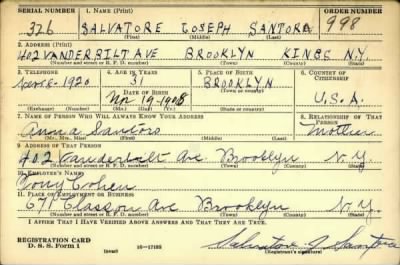 SERIAL NUMBER 1. NAME (Print) ORDER NUMBER
326 SALVATORE JOSEPH SANTORA 998
(First) (Middle) (Last)
2. ADDRESS (Print)
402 VANDERBILT AVE BROOKLYN KINGS N.Y.
(Number and street or R. F. D. number) (Town) (County) (State)
3. TELEPHONE 4. AGE IN YEARS 5. PLACE OF BIRTH 6. COUNTRY OF CITIZENSHIP
31 BROOKLYN
DATE OF BIRTH (Town or county)
1920 19-1908 U.S.A.
(Exchange) (Number) (Mo.) (Day) (Yr.) (State or country)
7. NAME OF PERSON WHO WILL ALWAYS KNOW YOUR ADDRESS 8. RELATIONSHIP OF THAT PERSON
Anna Santora Mother
(Mr., Mrs., Miss) (First) (Middle) (Last)
9. ADDRESS OF THAT PERSON
402 Vanderbilt Ave Brooklyn N.Y.
(Number and street or R. F. D. number) (Town) (County) (State)
10. EMPLOYER'S NAME
Tony Cohen
11. PLACE OF EMPLOYMENT OR BUSINESS
671 Classon Ave Brooklyn N.Y.
(Number and street or R. F. D. number) (Town) (County) (State)
I AFFIRM THAT I HAVE VERIFIED ABOVE ANSWERS AND THAT THEY ARE TRUE.
REGISTRATION CARD
D. S. S. Form 1 16—17105 Salvatore J. Santora
(Registrant's signature)